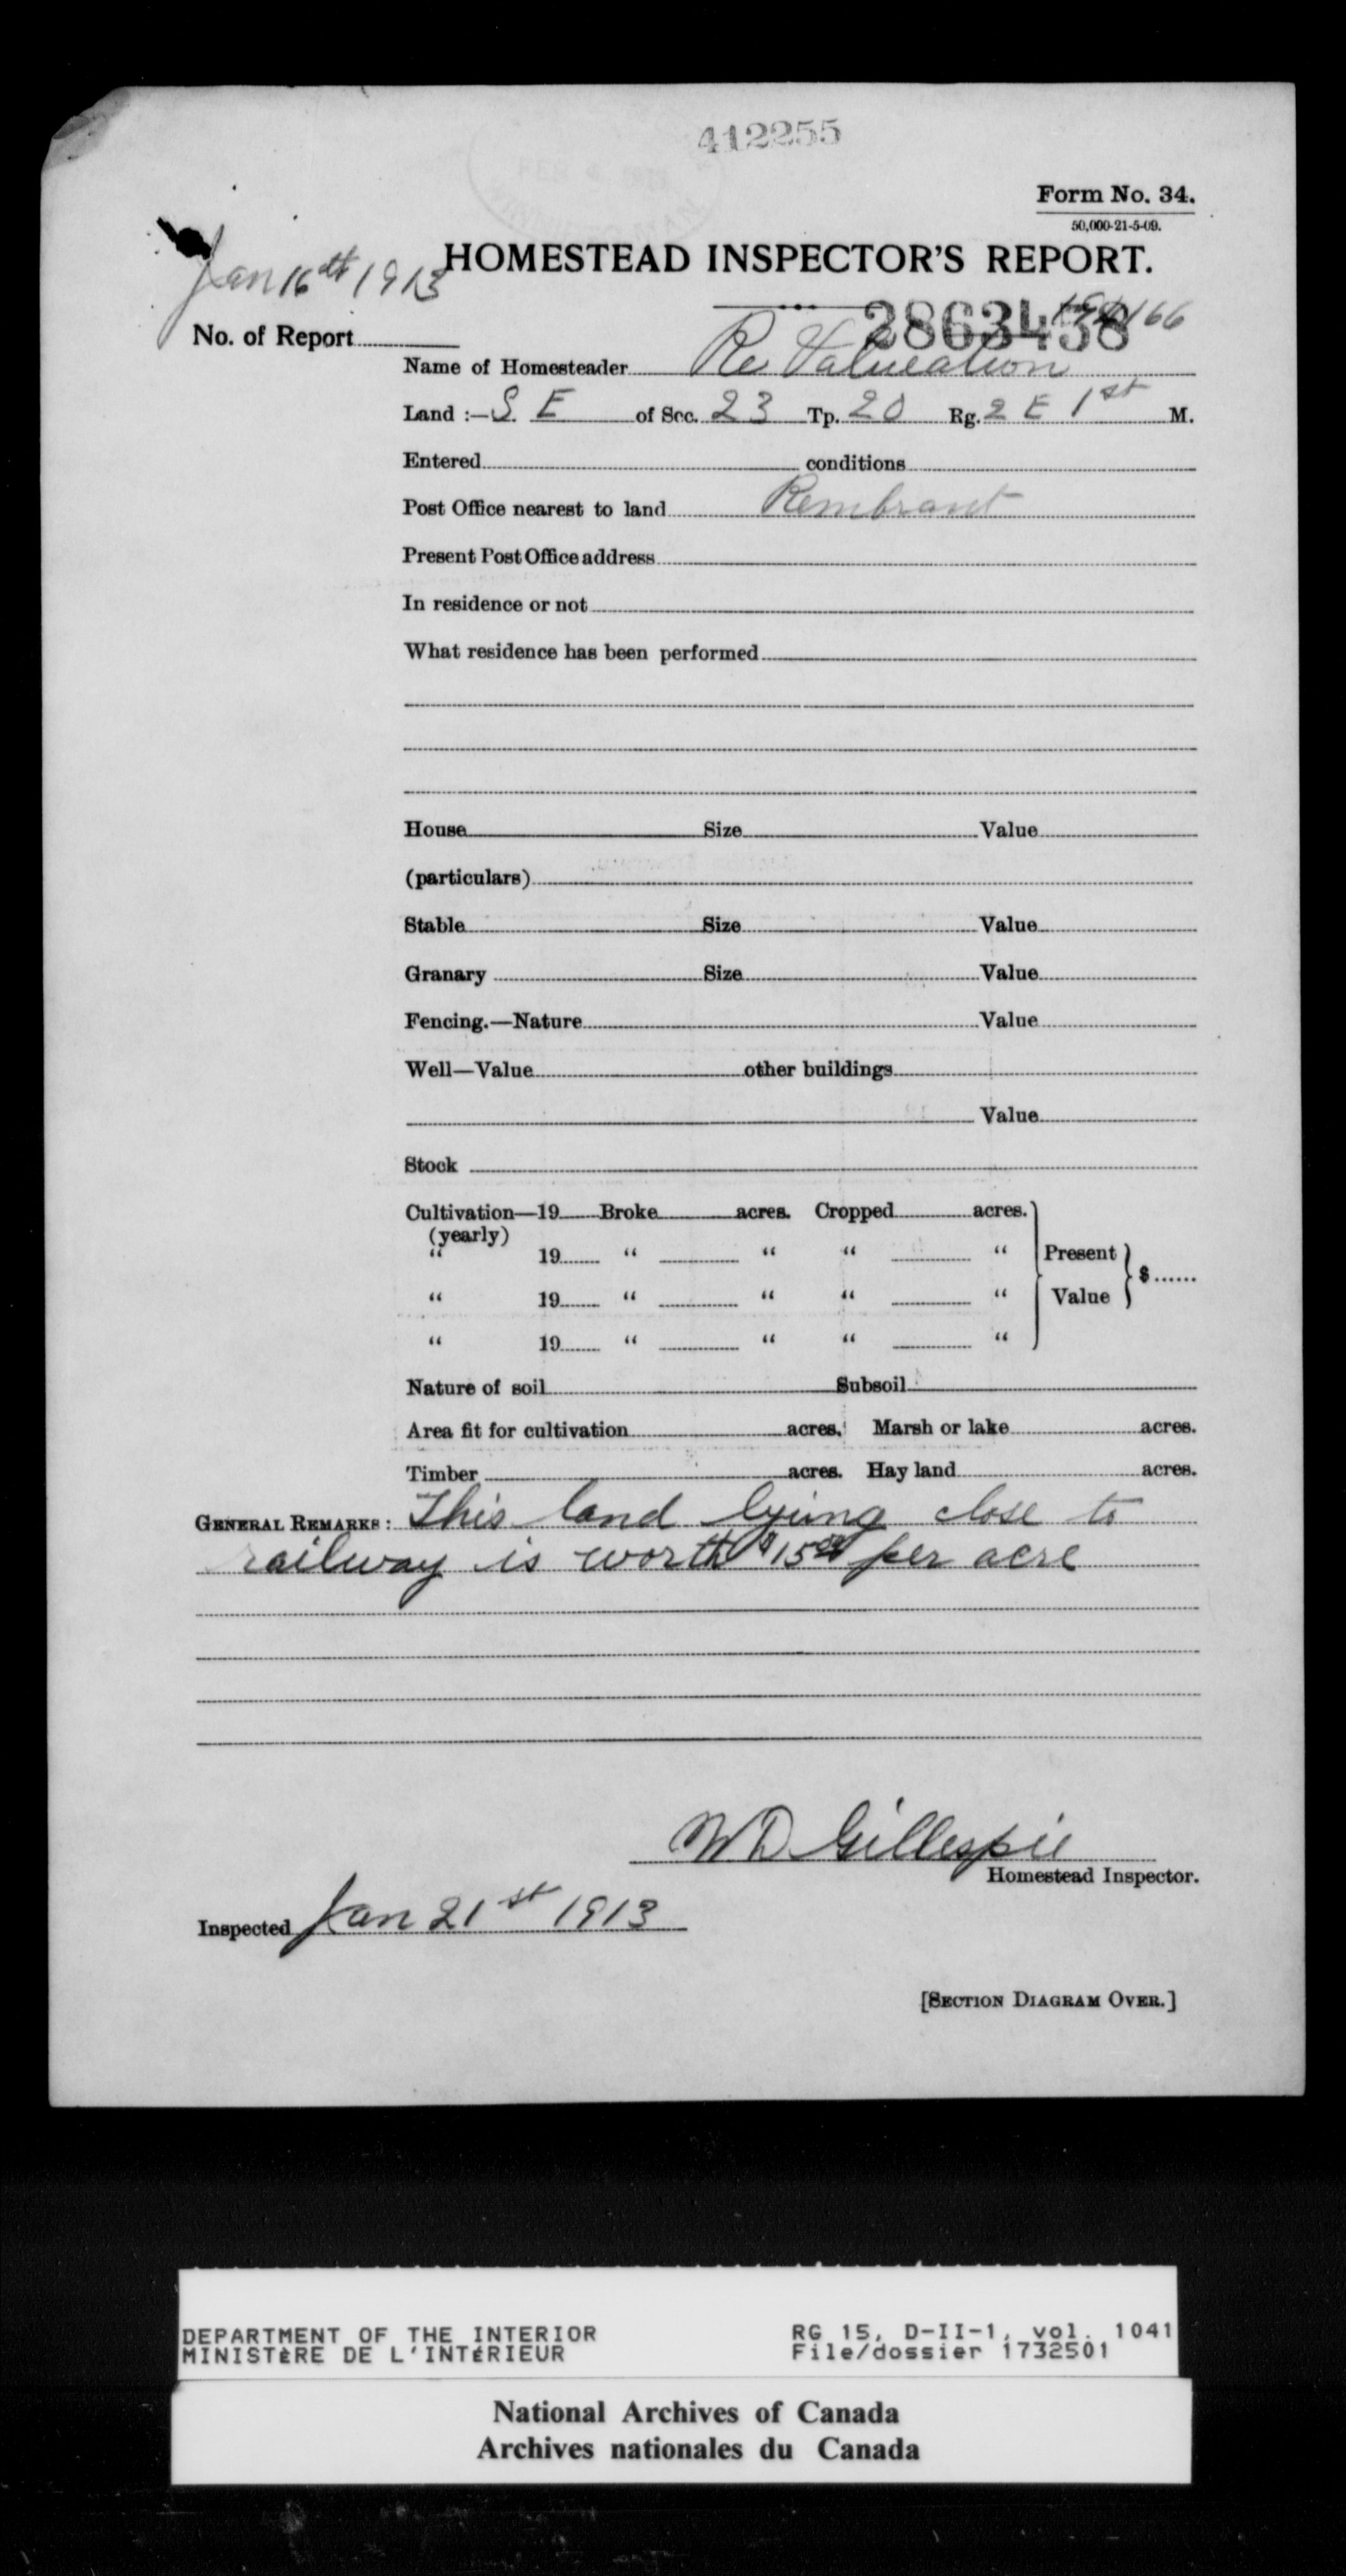 412255
Form No. 34.
50,000-21-5-09.
Jan 16th 1913
HOMESTEAD INSPECTOR'S REPORT.
2863458
No. of Report
Name of Homesteader Re Valueation
Land :— S. E of Sec. 23 Tp. 20 Rg. 2 E 1st M.
Entered conditions
Post Office nearest to land Rembrant
Present Post Office address
In residence or not
What residence has been performed
House Size Value
(particulars)
Stable Size Value
Granary Size Value
Fencing.—Nature Value
Well—Value other buildings
Value
Stock
Cultivation—19 Broke acres. Cropped acres.
(yearly)
“ 19 “ “ “ “ Present
$
“ 19 “ “ “ “ Value
“ 19 “ “ “ “
Nature of soil Subsoil
Area fit for cultivation acres. Marsh or lake acres.
Timber acres. Hay land acres.
GENERAL REMARKS: This land lyeing close to
railway is worth $15.00 per acre
W D Gillespie
Homestead Inspector.
Inspected Jan 21st 1913
[SECTION DIAGRAM OVER.]
DEPARTMENT OF THE INTERIOR RG 15, D-II-1, vol. 1041
MINISTÈRE DE L'INTÉRIEUR File/dossier 1732501
National Archives of Canada
Archives nationales du Canada